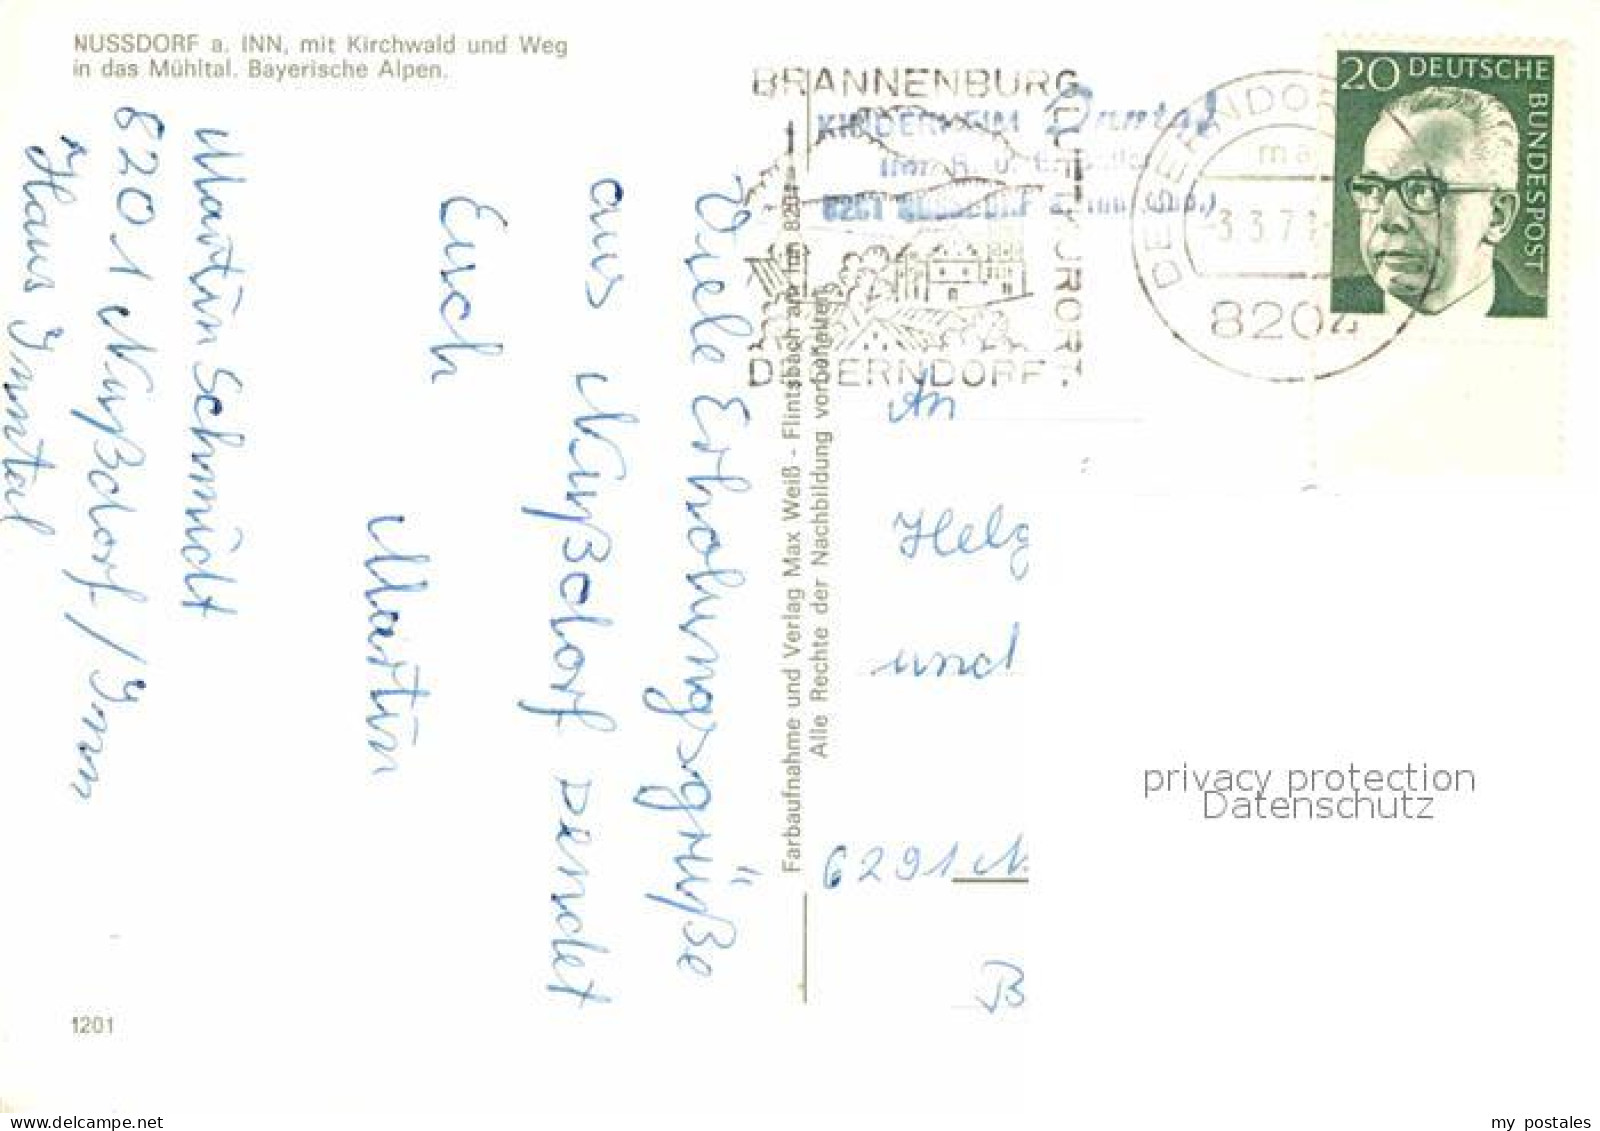 NUSSDORF a. INN, mit Kirchwald und Weg
in das Mühltal. Bayerische Alpen.
Viele Erholungsgrüße
aus Nußdorf sendet
Euch
Martin
Martin Schmidt
8201 Nußdorf / Inn
Haus Inntal
1201
Farbaufnahme und Verlag Max Weiß - Flintsbach am Inn 8201
Alle Rechte der Nachbildung vorbehalten
BRANNENBURG
LUFTKURORT
DEGERNDORF
KINDERHEIM Inntal
8201 NUSSDORF a. Inn (Obb.)
DEGERNDORF
3.3.71
8204
20 DEUTSCHE
BUNDESPOST
An
Helg
und
6291 N
B
privacy protection
Datenschutz
www.delcampe.net
my_postales